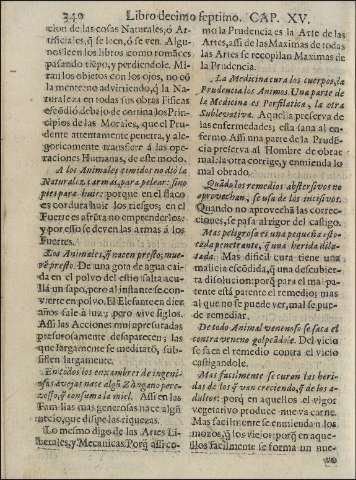 340 Libro decimo septimo. CAP. XV.
cion de las cosas Naturales, ó Ar-
tificiales, q̃ se leen, ó se ven. Algu-
nos leen los libros como romãces
pasando tiẽpo, y perdiendole. Mi-
ran los objetos con los ojos, no cõ
la mente: no advirtiendo, q̃ la Na-
turaleza en todas sus obras Fisicas
escõdió debajo de cortina los Prin-
cipios de las Morales, que el Pru-
dente attentamente penetra, y ale-
goricamente transfiere á las ope-
raciones Humanas, de este modo.
A los Animales timidos no dió la
Naturaleza armas, para pelear: sino
pies para huir: porque en el flaco
es cordura huir los riesgos; en el
Fuerte es afrẽta no emprenderlos:
y por esso se deven las armas á los
Fuertes.
Los Animales, q̃ nacen presto, mue-
rẽ presto. De una gota de agua cai-
da en el polvo del estio salta acu-
llá un sapo, pero al instante se con-
vierte en polvo. El Elefante en diez
años sale á luz; pero vive siglos.
Assi las Acciones mui apresuradas
presurosamente desaparecen; las
que largamente se meditarõ, sub-
sisten largamente.
En todos los enxambres de ingenio-
sas avejas nace algũ Zángano pere-
zosso, q̃ consuma la miel. Assi en las
Familias mas generosas nace algũ
necio, que disipe las riquezas.
Lo mesmo digo de las Artes Li-
berales, y Mecanicas. Porq̃ assi co-
mo la Prudencia es la Arte de las
Artes, assi de las Maximas de todas
las Artes se recopilan Maximas de
la Prudencia.
La Medicina cura los cuerpos, la
Prudencia los Animos. Una parte de
la Medicina es Porfilatica, la otra
Sublevativa. Aquella preserva de
las enfermedades; esta sana al en-
fermo. Assi una parte de la Prudẽ-
cia preserva al Hombre de obrar
mal: la otra corrige, y enmienda lo
mal obrado.
Quãdo los remedios abstersivos no
aprovechan, se usa de los incisivos.
Quando no aprovechã las correc-
ciones, se pasa al rigor del castigo.
Mas peligrosa es una pequeña esto-
cada penetrante, q̃ una herida dila-
tada. Mas dificil cura tiene una
malicia escõdida, q̃ una descubier-
ta disolucion: porq̃ para el mal pa-
tente está patente el remedio; mas
al que no se puede ver, mal se pue-
de remediar.
De todo Animal venenoso se saca el
contraveneno golpeãdole. Del vicio
se saca el remedio contra el vicio
castigandole.
Mas facilmente se curan las heri-
das de los q̃ van creciendo, q̃ de los a-
dultos: porq̃ en aquellos el vigor
vegetativo produce nueva carne.
Mas facilmente se enmiendan los
mozos, q̃ los viejos: porq̃ en aque-
llos facilmente se forma un nue-
vo